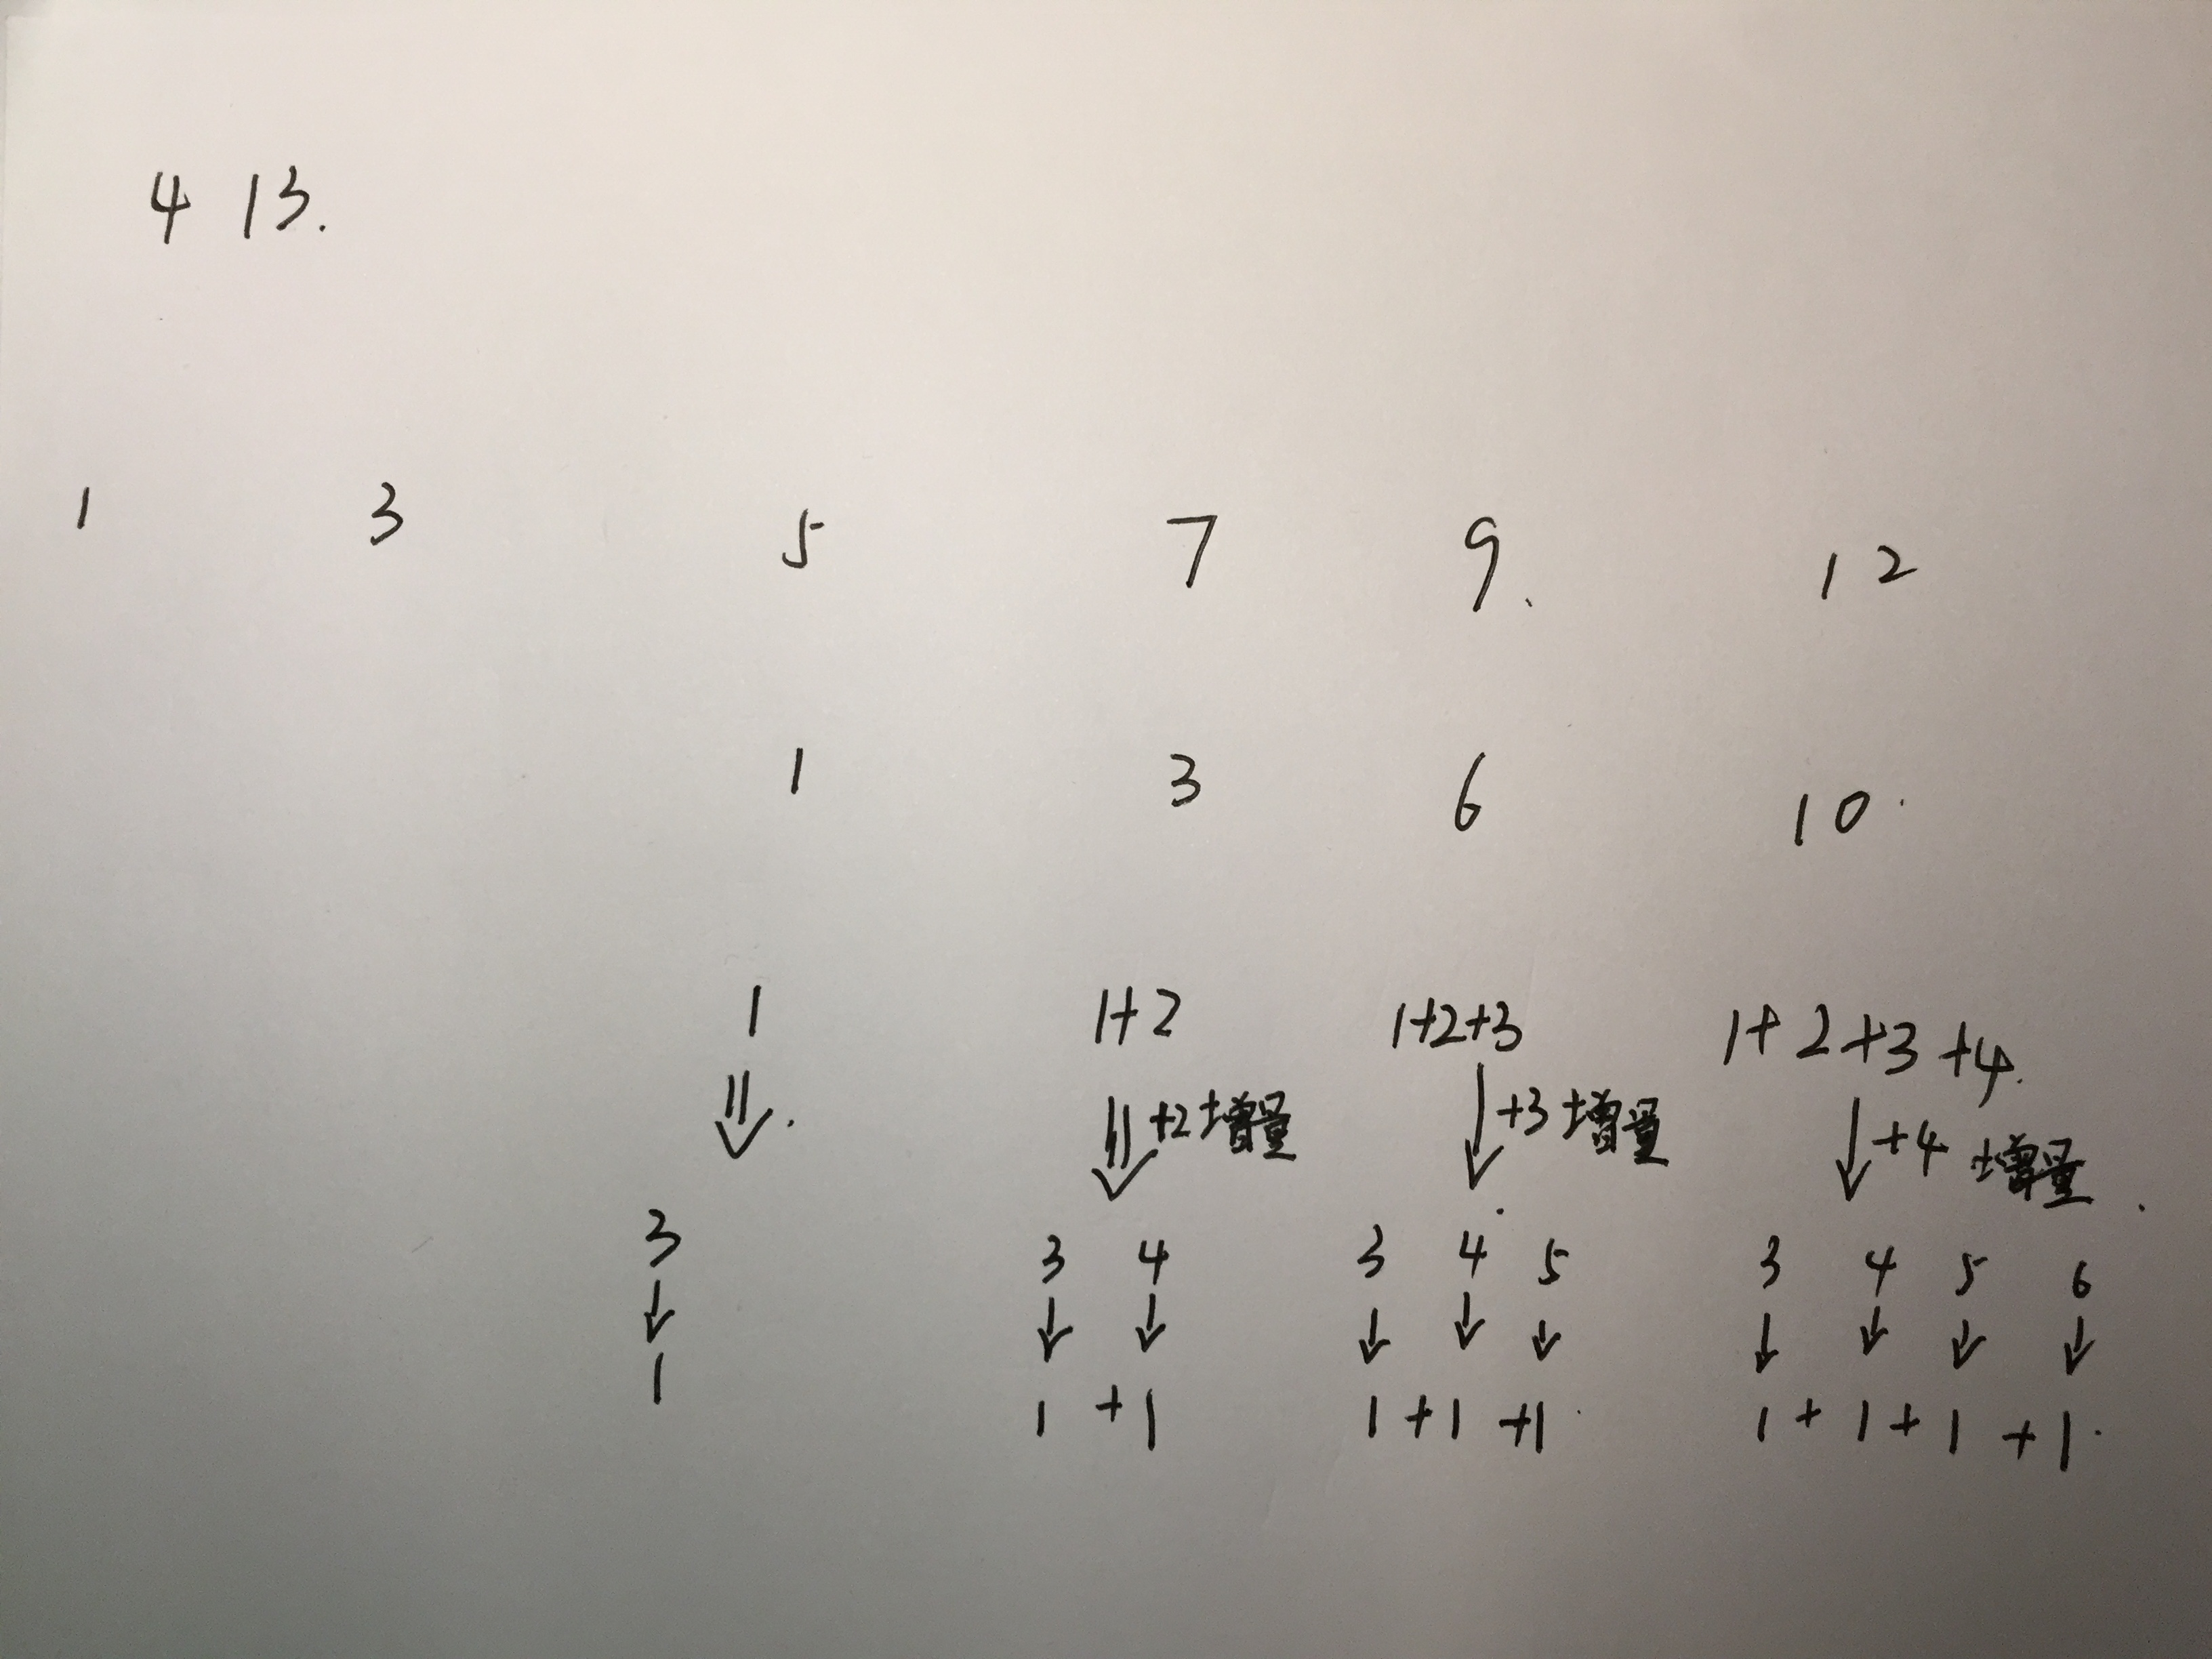 4 13.
1 3 5 7 9. 12
1 3 6 10.
1 1+2 1+2+3 1+2+3+4.
⇓. ⇓+2增量 ↓+3增量 ↓+4增量.
3 3 4 3 4 5 3 4 5 6
↓ ↓ ↓ ↓ ↓ ↓ ↓ ↓ ↓ ↓
1 1+1 1+1+1. 1+1+1+1.